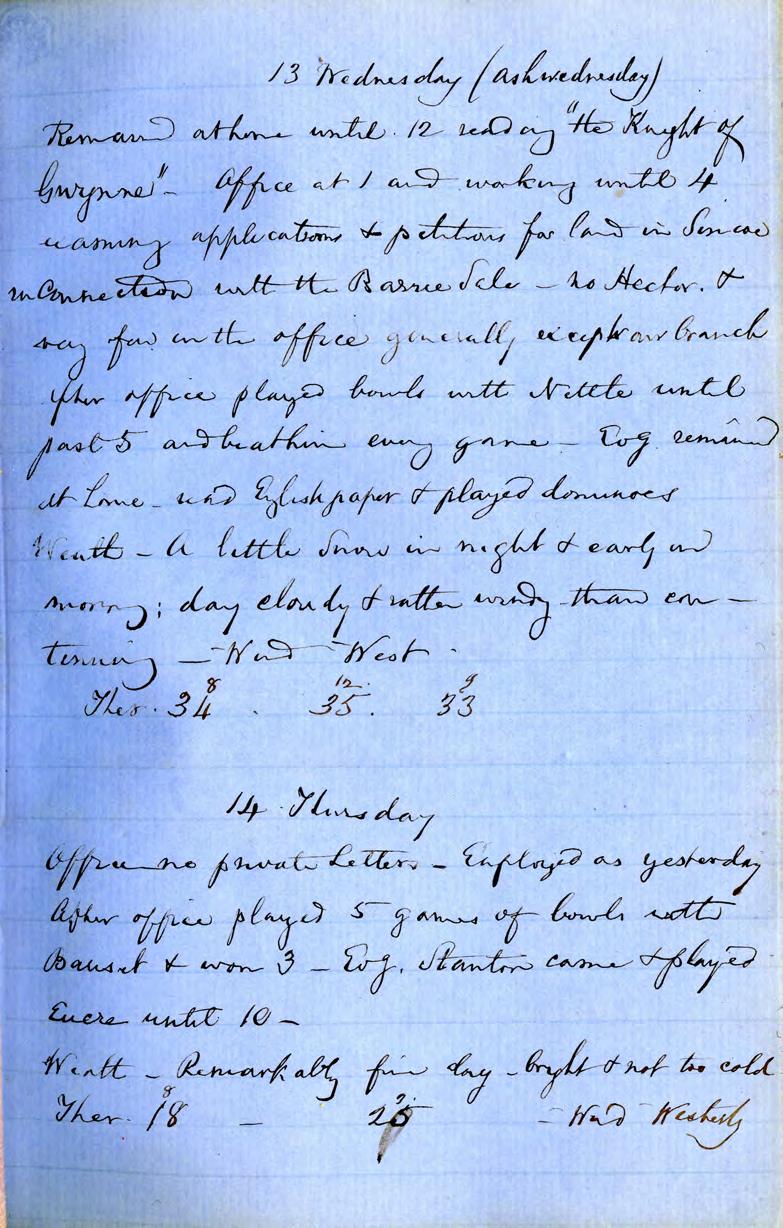 13 Wednesday (ashwednesday)
Remained at home until 12 reading "the Knight of
Gwynne" - Office at 1 and working until 4
examining applications & petitions for land in Simcoe
in Connection with the Barrie Sale - no Hector. &
very few in the office generally except our branch
After office played bowls with Nettle until
past 5 and beat him every game - Evg remained
at home - read English paper & played dominoes
Weath - A little Snow in night & early in
morng; day cloudy & rather windy than con-
tinuing - Wind West.
8 12 9
Ther. 34 . 35. 33
14 Thursday
Office no private Letters - Employed as yesterday
After office played 5 games of bowls with
& won 3 - Evg. Stanton came & played
Eucre until 10 -
Weath - Remarkably fine day - bright & not too cold
8 9
Ther. 18 - 25 - Wind Westerly